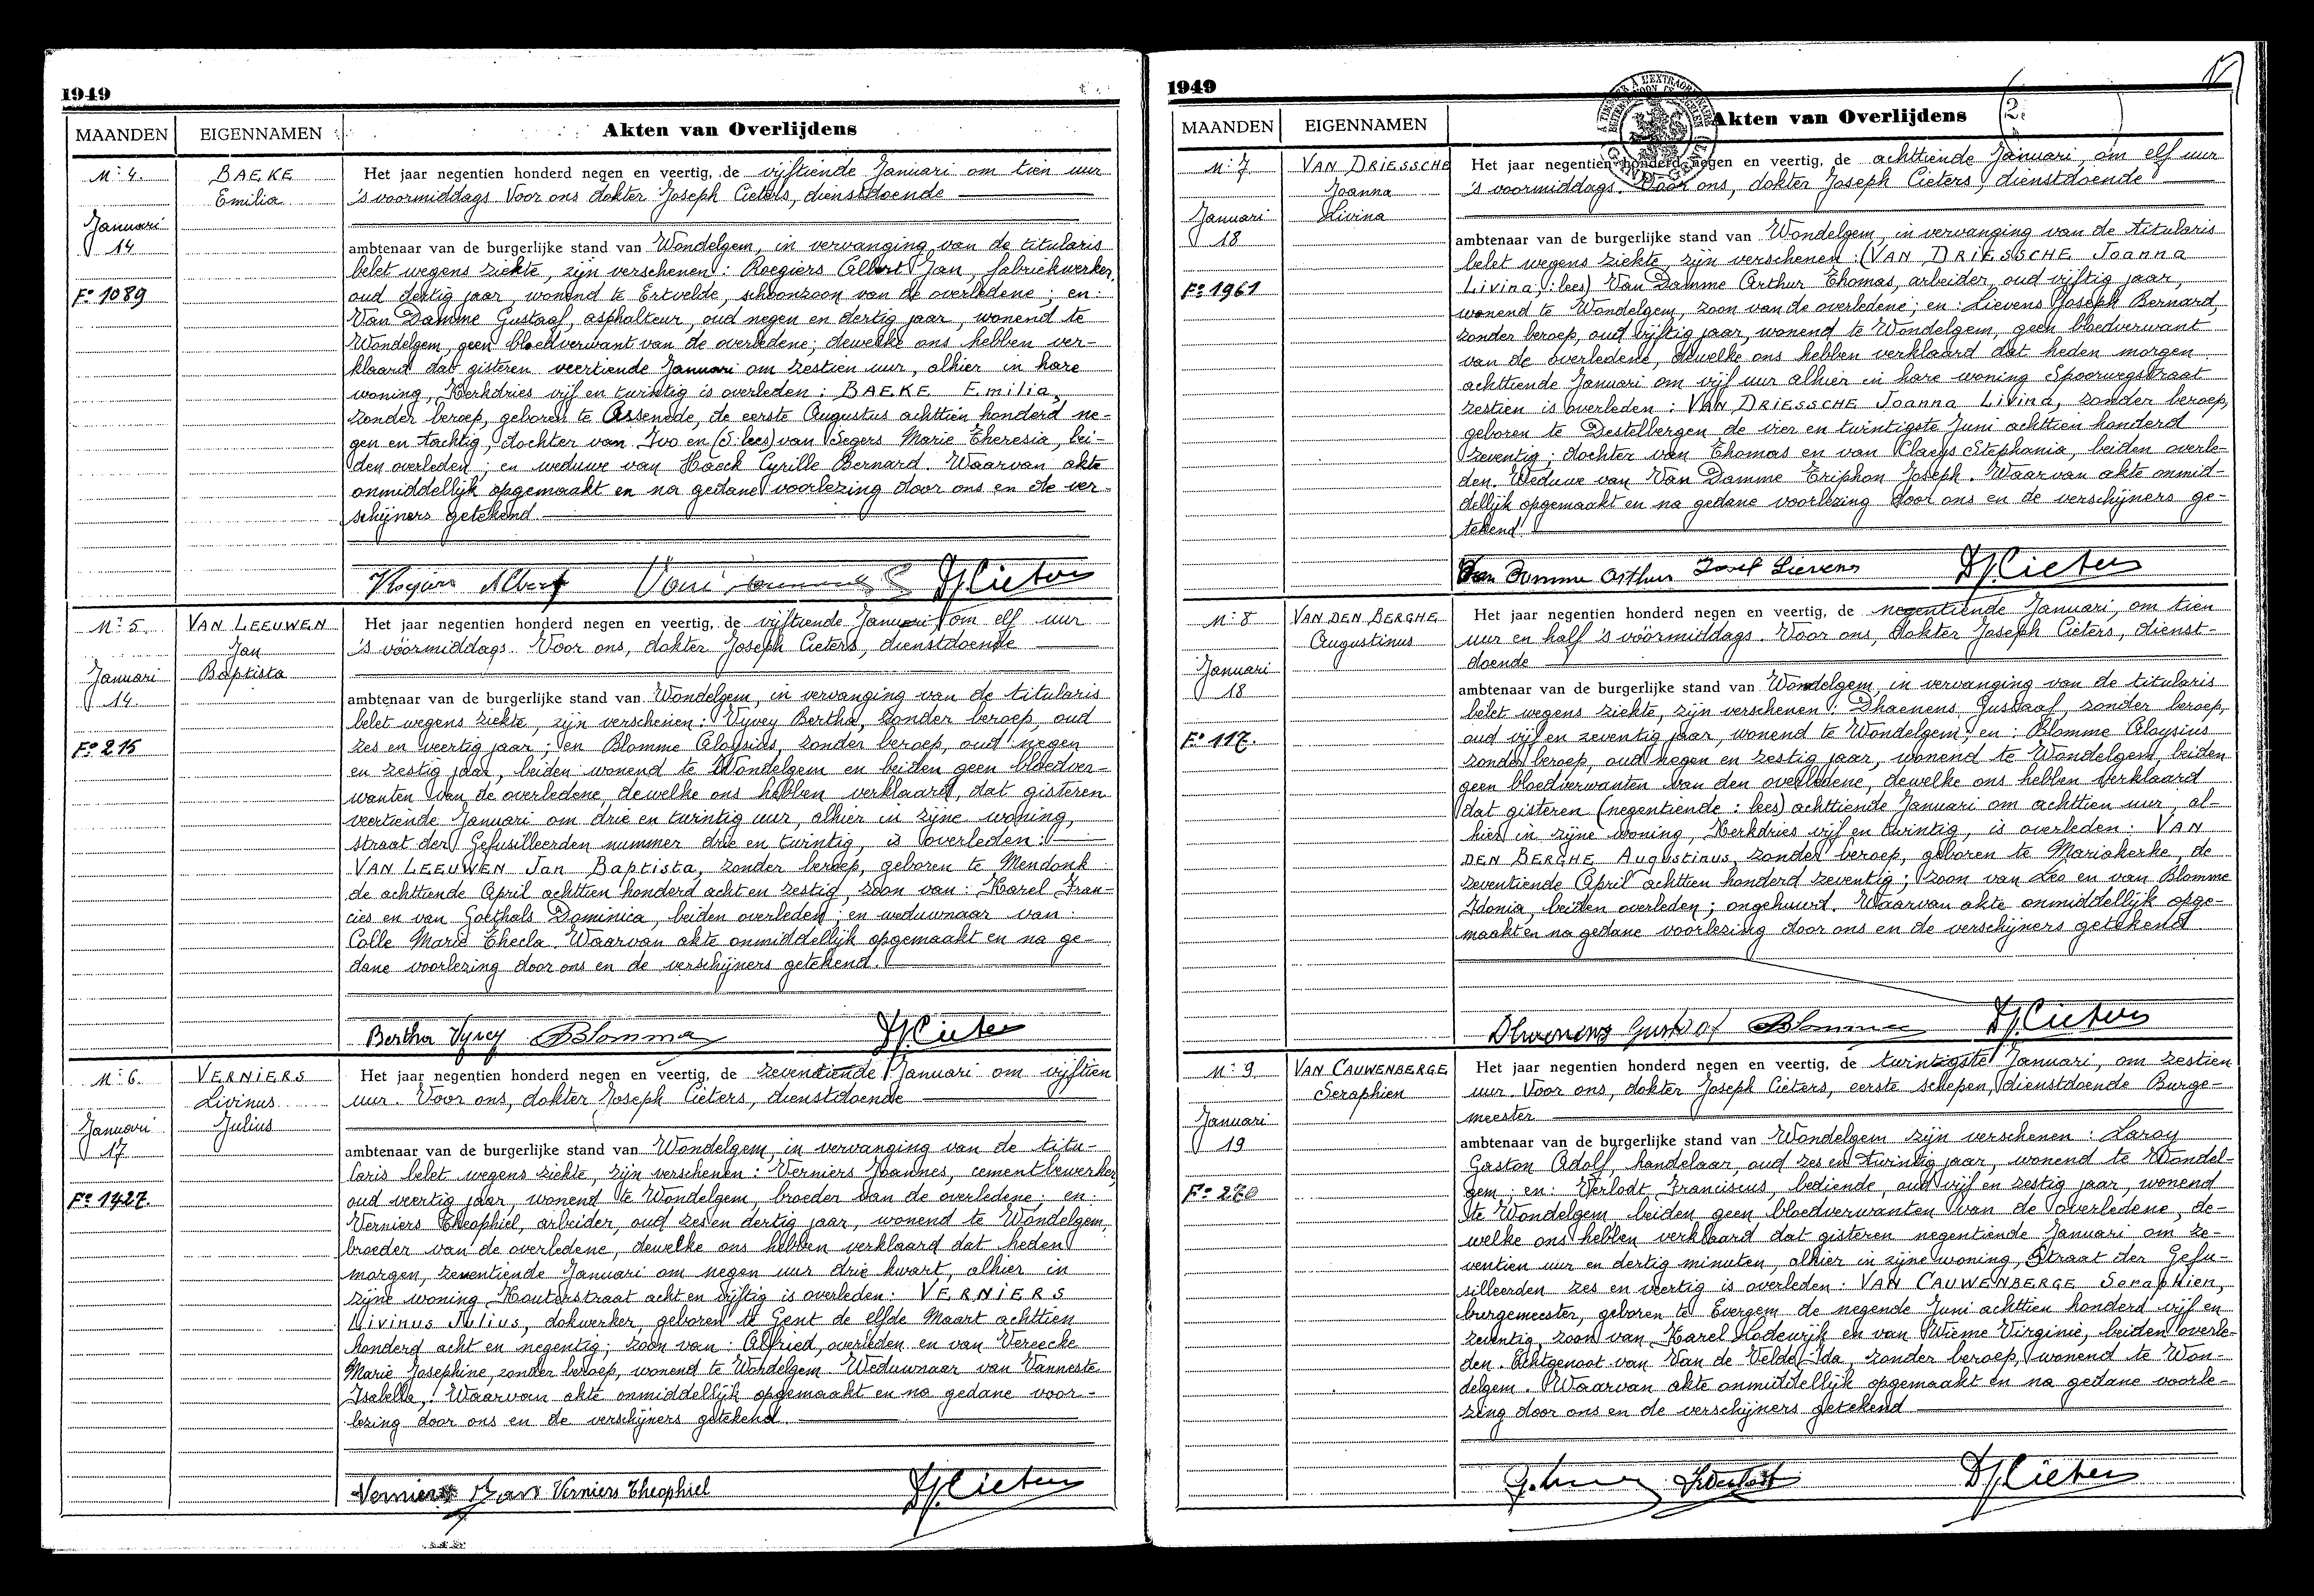 1949
MAANDEN EIGENNAMEN Akten van Overlijdens
Nr 4. BAEKE Emilia
Januari 14
Fo 1089
Het jaar negentien honderd negen en veertig, de vijftiende Januari om tien uur
's voormiddags. Voor ons dokter Joseph Cieters, dienstdoende
ambtenaar van de burgerlijke stand van Wondelgem, in vervanging van de titularis
belet wegens ziekte, zijn verschenen: Roegiers Albert Jan, fabriekwerker,
oud dertig jaar, wonend te Ertvelde, schoonzoon van de overledene; en:
Van Damme Gustaaf, asphalteur, oud negen en dertig jaar, wonend te
Wondelgem, geen bloedverwant van de overledene; dewelke ons hebben ver-
klaard dat gisteren veertiende Januari om zestien uur, alhier in hare
woning, Kerkdries vijf en twintig is overleden: BAEKE Emilia,
zonder beroep, geboren te Assenede, de eerste Augustus achttien honderd ne-
gen en tachtig, dochter van Ivo en (S: lees) van Segers Marie Theresia, bei-
den overleden; en weduwe van Haeck Cyrille Bernard. Waarvan akte
onmiddellijk opgemaakt en na gedane voorlezing door ons en de ver-
schijners getekend.
Roegiers Albert DJ. Cieters
Nr 5. VAN LEEUWEN Jan Baptista
Januari 14
Fo 215
Het jaar negentien honderd negen en veertig, de vijftiende Januari, om elf uur
's voormiddags. Voor ons, dokter Joseph Cieters, dienstdoende
ambtenaar van de burgerlijke stand van Wondelgem, in vervanging van de titularis
belet wegens ziekte, zijn verschenen: Vyvey Bertha, zonder beroep, oud
zes en veertig jaar; en Blomme Aloysius, zonder beroep, oud negen
en zestig jaar, beiden wonend te Wondelgem en beiden geen bloedver-
wanten van de overledene, dewelke ons hebben verklaard, dat gisteren
veertiende Januari om drie en twintig uur, alhier in zijne woning,
straat der Gefusilleerden nummer drie en twintig, is overleden:
VAN LEEUWEN Jan Baptista, zonder beroep, geboren te Mendonk
de achttiende April achttien honderd acht en zestig, zoon van: Karel Fran-
cies en van Goethals Dominica, beiden overleden; en weduwnaar van:
Colle Marie Thecla. Waarvan akte onmiddellijk opgemaakt en na ge-
dane voorlezing door ons en de verschijners getekend.
Bertha Vyvey Blomme DJ. Cieters
Nr 6. VERNIERS Livinus Julius
Januari 17
Fo 1427.
Het jaar negentien honderd negen en veertig, de zeventiende Januari om vijftien
uur. Voor ons, dokter Joseph Cieters, dienstdoende
ambtenaar van de burgerlijke stand van Wondelgem, in vervanging van de titu-
laris belet wegens ziekte, zijn verschenen: Verniers Joannes, cementbewerker
oud veertig jaar, wonend te Wondelgem, broeder van de overledene; en:
Verniers Theophiel, arbeider, oud zes en dertig jaar, wonend te Wondelgem,
broeder van de overledene, dewelke ons hebben verklaard dat heden
morgen, zeventiende Januari om negen uur drie kwart, alhier in
zijne woning Kouterstraat acht en vijftig is overleden: VERNIERS
Livinus Julius, dokwerker, geboren te Gent de elfde Maart achttien
honderd acht en negentig; zoon van: Alfried, overleden en van Vereecke
Marie Josephine, zonder beroep, wonend te Wondelgem. Weduwnaar van Vanneste
Isabella,. Waarvan akte onmiddellijk opgemaakt en na gedane voor-
lezing door ons en de verschijners getekend.
Verniers Jan Verniers Theophiel DJ. Cieters
1949
2.
MAANDEN EIGENNAMEN Akten van Overlijdens
Nr 7. VAN DRIESSCHE Joanna Livina
Januari 18
Fo 1961
Het jaar negentien honderd negen en veertig, de achttiende Januari, om elf uur
's voormiddags. Voor ons, dokter Joseph Cieters, dienstdoende
ambtenaar van de burgerlijke stand van Wondelgem, in vervanging van de titularis
belet wegens ziekte, zijn verschenen: (VAN DRIESSCHE Joanna
Livina,: lees) Van Damme Arthur Thomas, arbeider, oud vijftig jaar,
wonend te Wondelgem, zoon van de overledene; en: Lievens Joseph Bernard,
zonder beroep, oud vijftig jaar, wonend te Wondelgem, geen bloedverwant
van de overledene, dewelke ons hebben verklaard dat heden morgen
achttiende Januari om vijf uur alhier in hare woning Spoorwegstraat
zestien is overleden: VAN DRIESSCHE Joanna Livina, zonder beroep,
geboren te Destelbergen de vier en twintigste Juni achttien honderd
zeventig; dochter van Thomas en van Claeys Stephania, beiden overle-
den. Weduwe van Van Damme Triphon Joseph. Waarvan akte onmid-
dellijk opgemaakt en na gedane voorlezing door ons en de verschijners ge-
tekend.
Van Damme Arthur Josef Lievens DJ. Cieters
Nr 8 VAN DEN BERGHE Augustinus
Januari 18
Fo 117.
Het jaar negentien honderd negen en veertig, de negentiende Januari, om tien
uur en half 's voormiddags. Voor ons, dokter Joseph Cieters, dienst-
doende
ambtenaar van de burgerlijke stand van Wondelgem, in vervanging van de titularis
belet wegens ziekte, zijn verschenen: Dhaenens Gustaaf, zonder beroep,
oud vijf en zeventig jaar, wonend te Wondelgem; en: Blomme Aloysius
zonder beroep, oud negen en zestig jaar, wonend te Wondelgem, beiden
geen bloedverwanten van den overledene, dewelke ons hebben verklaard
dat gisteren (negentiende: lees) achttiende Januari om achttien uur, al-
hier in zijne woning, Kerkdries vijf en twintig, is overleden: VAN
DEN BERGHE Augustinus, zonder beroep, geboren te Mariakerke, de
zeventiende April achttien honderd zeventig; zoon van Leo en van Blomme
Idonia, beiden overleden; ongehuwd. Waarvan akte onmiddellijk opge-
maakt en na gedane voorlezing door ons en de verschijners getekend
Dhaenens Gustaaf Blomme DJ. Cieters
Nr 9. VAN CAUWENBERGE Seraphien
Januari 19
Fo 270
Het jaar negentien honderd negen en veertig, de twintigste Januari, om zestien
uur. Voor ons, dokter Joseph Cieters, eerste schepen, dienstdoende Burge-
meester
ambtenaar van de burgerlijke stand van Wondelgem zijn verschenen: Laroy
Gaston Adolf, handelaar, oud zes en twintig jaar, wonend te Wondel-
gem; en: Verlodt Franciscus, bediende, oud vijf en zestig jaar, wonend
te Wondelgem beiden geen bloedverwanten van de overledene, de-
welke ons hebben verklaard dat gisteren negentiende Januari om ze-
ventien uur en dertig minuten, alhier in zijne woning, Straat der Gefu-
silleerden zes en veertig is overleden: VAN CAUWENBERGE Seraphien,
burgemeester, geboren te Evergem de negende Juni achttien honderd vijf en
zeventig, zoon van Karel Lodewijk en van Wieme Virginie, beiden overle-
den. Echtgenoot van Van de Velde Ida, zonder beroep, wonend te Won-
delgem. Waarvan akte onmiddellijk opgemaakt en na gedane voorle-
zing door ons en de verschijners getekend
DJ. Cieters